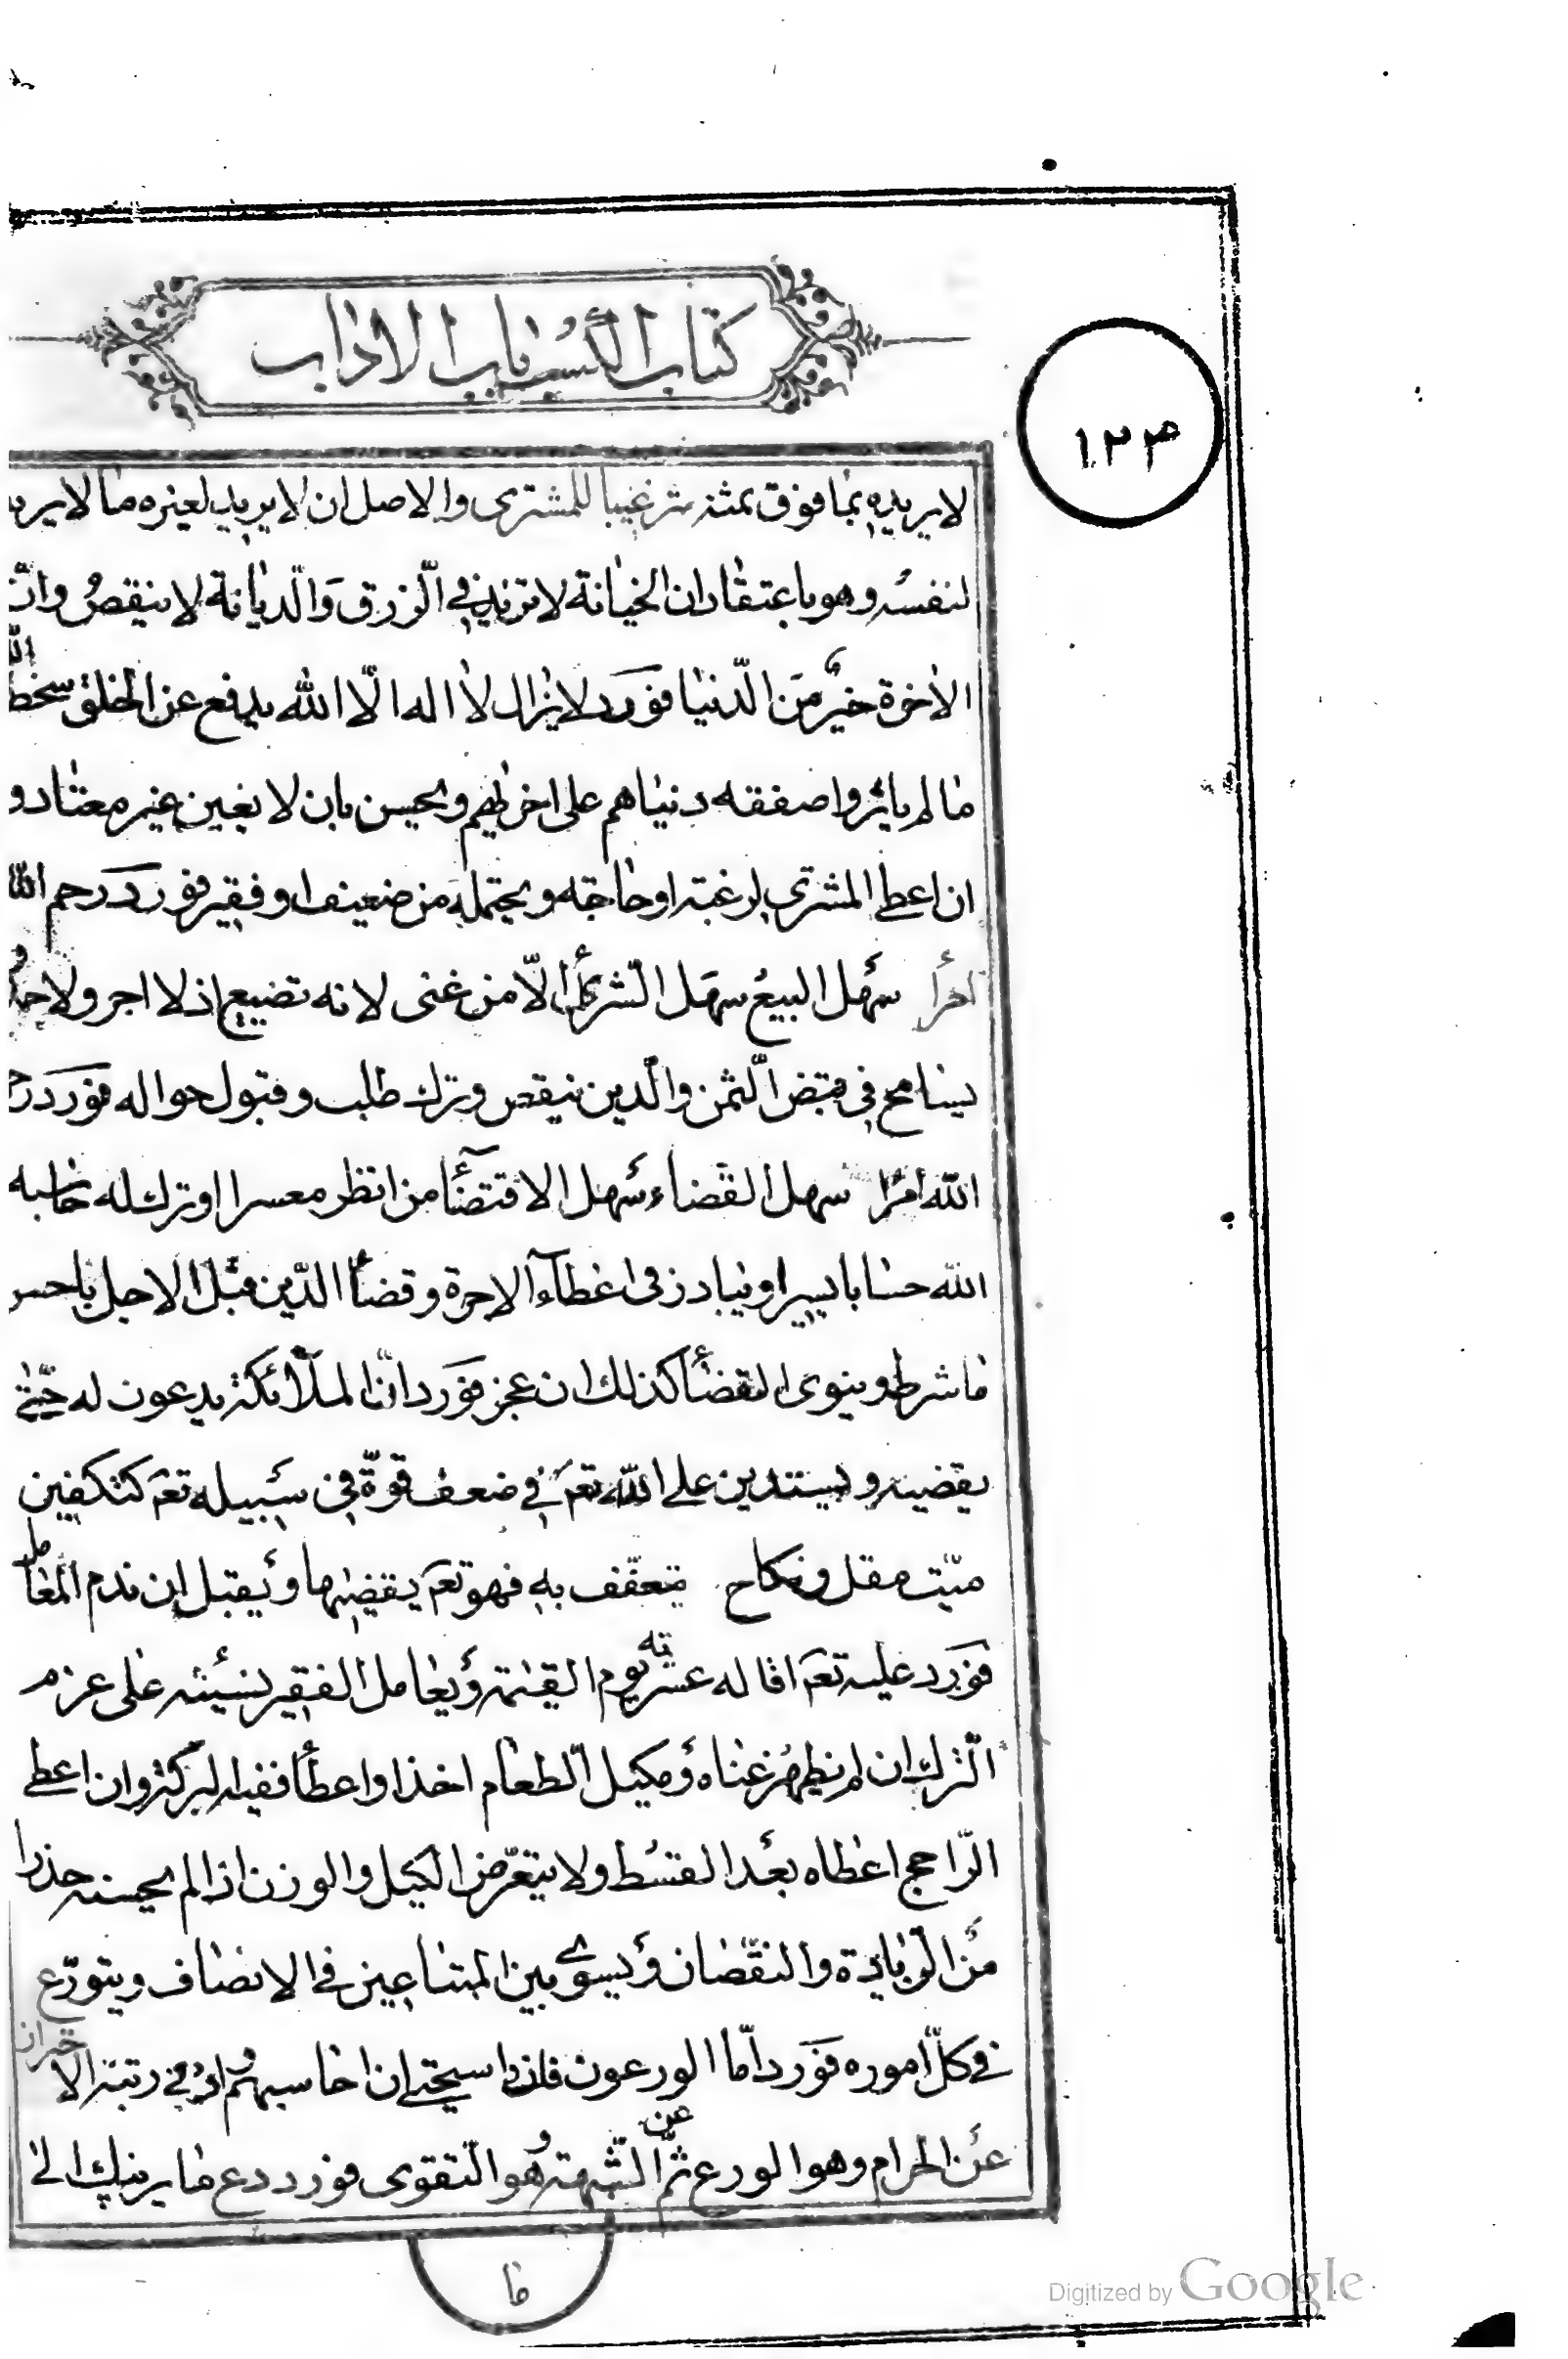 كتاب الكسب باب الاداب
١٢٣
لا يريده بما فوق ثمنه ترغيبا للمشترى والاصل ان لا يريد لغيره ما لا يريد
لنفسه وهو باعتقاد ان الخيانة لا تزيد في الرّزق وَالدّيانة لا ينقصُ وانّ
الاخرة خيرٌ مَن الدّنيا فوَرَد لا يزال لا اله الّا الله يدفع عن الخلق سخط الله
ما لم يؤثروا صفقه دنياهم على اخرتهم ويحسن بان لا يغبن غير معتاد و
ان اعطى المشترى لرغبته او حاجته ويحتمله من ضعيف او فقير فورد رحم الله
امرأ سهل البيع سهل الشّرئ الّا من غنى لانه تضييع اذ لا اجر ولا حمد و
يسامح في قبض الثّمن والّدين بنقص وترك طلب وقبول حواله فوَرَد رحم
الله امرًا سهل القضاء سَهل الاقتضآء من انظر معسرا او ترك له حاسبه
الله حسابا يسيرا ويبادر فى اعطآء الاجرة وقضأ الدّين قبل الاجل باحسن
ما شرط وينوى القضأ كذلك ان عجز فوَرد انّ الملآئكة يدعون له حتّى
يقضيه ويستدين على الله تعَم في ضعف قوّة في سَبيله تعَم كتكفين
ميّت مقل ونكاح يتعفّف به فهو تعَم يقضيها وَيقبل ان ندم المعامل
فوَرَد عليه تعَم اقاله عشرته يوم القيٰمة وَيعامل الفقير بنسَيئه على عزم
التّرك ان لم يظهر غناه وَمكيل الطعام اخذا واعطأ ففيه البركة وان اعطى
الرّاجح اعطاه بعَد القسُط ولا يتعرّض الكيل والوزن اذا لم يحسنه حذرا
مَن الزّيادة والنقصان وَيسوّى بين المتبايعين فى الانصاف ويتورّع
في كلّ اموره فوَرد امّا الورعون فانى استحيى ان احاسبهم وادنى رتبته الاحتراز
عَن الحرام وهو الورع ثمّ عن الشّبهة وهُو التّقوى فورد دع ما يريبك الى
ما
Digitized by Google